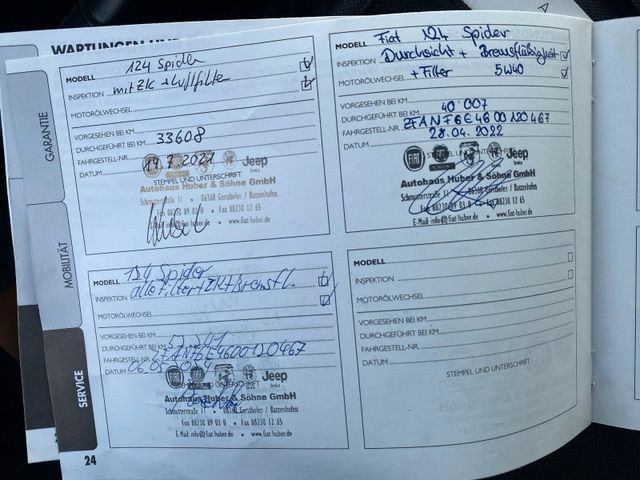 WARTUNGEN UND
GARANTIE
MOBILITÄT
SERVICE
MODELL 124 Spider
INSPEKTION mit ZK + Luftfilter
MOTORÖLWECHSEL
VORGESEHEN BEI KM
DURCHGEFÜHRT BEI KM 33608
FAHRGESTELL-NR.
DATUM 19.7.2021
STEMPEL UND UNTERSCHRIFT
Jeep
Autohaus Huber & Söhne GmbH
Schmutterstraße 11 • 86368 Gersthofen / Batzenhofen
Fax 08230 12 65
www.fiat-huber.de
MODELL Fiat 124 Spider
INSPEKTION Durchsicht + Bremsflüßigkeit
MOTORÖLWECHSEL + Filter 5W40
VORGESEHEN BEI KM
DURCHGEFÜHRT BEI KM 40 007
FAHRGESTELL-NR. ZFANF6E4600120467
DATUM 28.04.2022
FIAT Jeep
Autohaus Huber & Söhne GmbH
Schmutterstraße 11 • 86368 Gersthofen / Batzenhofen
Fax 08230 12 65
E-Mail info@fiat-huber.de • www.fiat-huber.de
MODELL 124 Spider
INSPEKTION alle Filter + ZK + Bremsfl.
MOTORÖLWECHSEL
VORGESEHEN BEI KM
DURCHGEFÜHRT BEI KM
FAHRGESTELL-NR. ZFANF6E4600120467
DATUM
STEMPEL UND UNTERSCHRIFT
Jeep
Autohaus Huber & Söhne GmbH
Schmutterstraße 11 • 86368 Gersthofen / Batzenhofen
• Fax 08230 89 03 0 • Fax 08230 12 65
E-Mail info@fiat-huber.de • www.fiat-huber.de
MODELL
INSPEKTION
MOTORÖLWECHSEL
VORGESEHEN BEI KM
DURCHGEFÜHRT BEI KM
FAHRGESTELL-NR.
DATUM
STEMPEL UND UNTERSCHRIFT
24